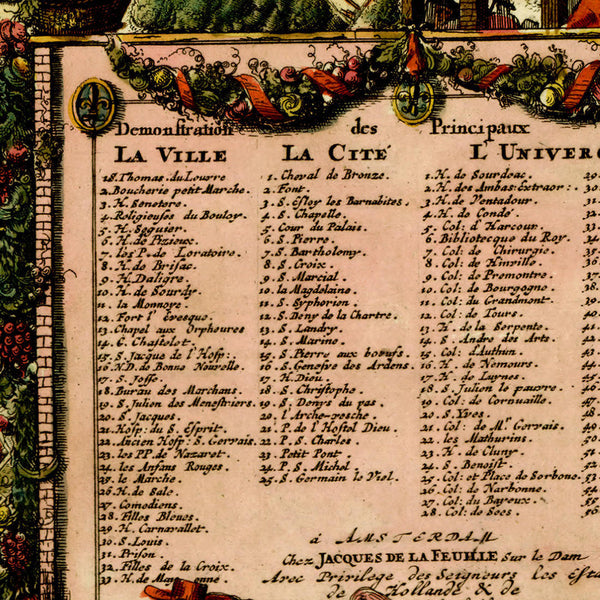 Demonstration des Principaux
LA VILLE
1. S. Thomas. du Louvre
2. Boucherie petit Marche.
3. H. Senetere.
4. Religieuses du Bouloy.
5. H. Seguier.
6. H. de Pizieux.
7. les P. de Loratoire.
8. H. de Brisac.
9. H. Daligre.
10. H. de Sourdy.
11. la Monnoye.
12. Fort l' evesque.
13. Chapel aux Orpheures
14. G. Chastelet.
15. S. Jacque de l'Hosp:.
16. N.D. de Bonne Nouvelle.
17. S. Josse.
18. Bureau des Marchans.
19. S. Julien des Menestriers.
20. S. Jacques.
21. Hosp: du S. Esprit.
22. Ancien Hosp: S. Gervais.
23. les P.P. de Nazaret.
24. les Anfans Rouges.
25. le Marche.
26. H. de Sale.
27. Comediens.
28. Filles Bleues.
29. H. Carnavallet.
30. S. Louis.
31. Prison.
32. Filles de la Croix.
33. H. de
LA CITÉ
1. Cheval de Bronze.
2. Font.
3. S. Esloy les Barnabites.
4. S. Chapelle.
5. Cour du Palais.
6. S. Pierre.
7. S. Bartholemy.
8. S. Croix.
9. S. Marcial.
10. la Magdelaine.
11. S. Syphorien.
12. S. Deny de la Chartre.
13. S. Landry.
14. S. Marine.
15. S. Pierre aux boeufs.
16. S. Genefve des Ardens.
17. H. Dieu.
18. S. Christophe.
19. S. Denys du pas.
20. l'Arche-vesche.
21. P. de l'Hostel Dieu.
22. P. S. Charles.
23. Petit Pont
24. P. S. Michel.
25. S. Germain le Viel.
L'UNIVER
1. H. de Sourdeac.
2. H. des Ambas: Extraor:.
3. H. de Ventadour.
4. H. de Condé
5. Col: d' Harcour.
6. Bibliotecque du Roy.
7. Col: de Chirurgie.
8. Col: de Hinville.
9. Col: de Premontre.
10. Col: de Bourgogne.
11. Col: du Grandmont.
12. Col: de Tours.
13. H. de la Serpente.
14. S. Andre des Arts.
15. Col: d'Authun.
16. H. de Nemours.
17. H. de Luynes.
18. S. Julien le pauvre.
19. Col: de Cornuaille.
20. S. Yves.
21. Col: de Mr. Gervais.
22. les Mathurins.
23. H. de Cluny.
24. S. Benoist.
25. Col: et Place de Sorbone.
26. Col: de Narbonne.
27. Col: du Bayeux.
28. Col: de Sees.
à AMSTERDAM
Chez JACQUES DE LA FEUILLE Sur le Dam
Avec Privilege des Seigneurs les esta
de Hollande & de